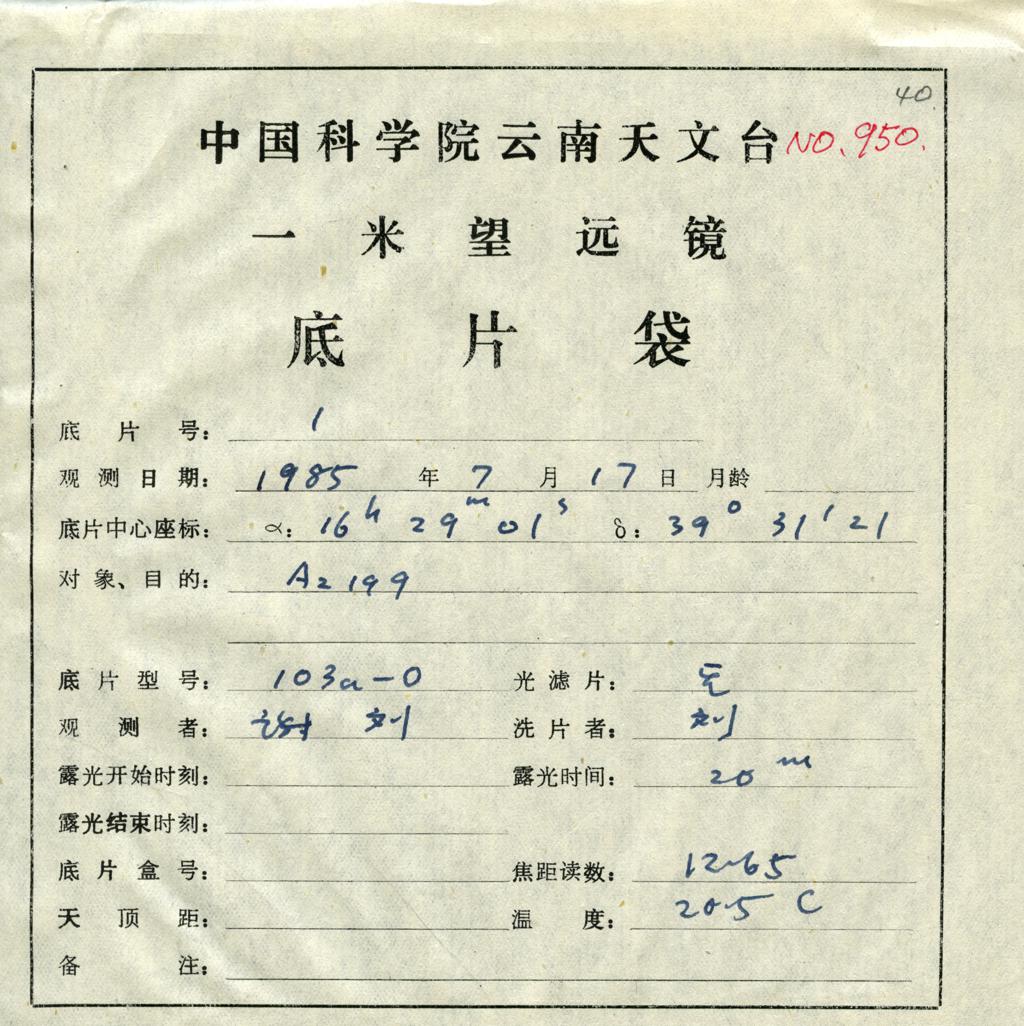 40
中国科学院云南天文台 NO. 950.
一米望远镜
底片袋
底片号： 1
观测日期： 1985 年 7 月 17 日 月龄
底片中心座标： α： 16h 29m 01s δ： 39° 31′ 21
对象、目的： A2199
底片型号： 103a-O 光滤片： 无
观测者： 谢 刘 洗片者： 刘
露光开始时刻： 露光时间： 20m
露光结束时刻：
底片盒号： 焦距读数： 12.65
天顶距： 温度： 20.5 C
备注：